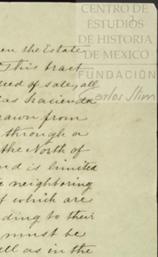 CENTRO DE
ESTUDIOS
DE HISTORIA
DE MEXICO
FUNDACIÓN
Carlos Slim
en the Estate
This tract
deed of sale, all
as hacienda
rawn from
through a
the North of
nd is limited
e neighboring
f which are
ding to their
must be
ell as in the